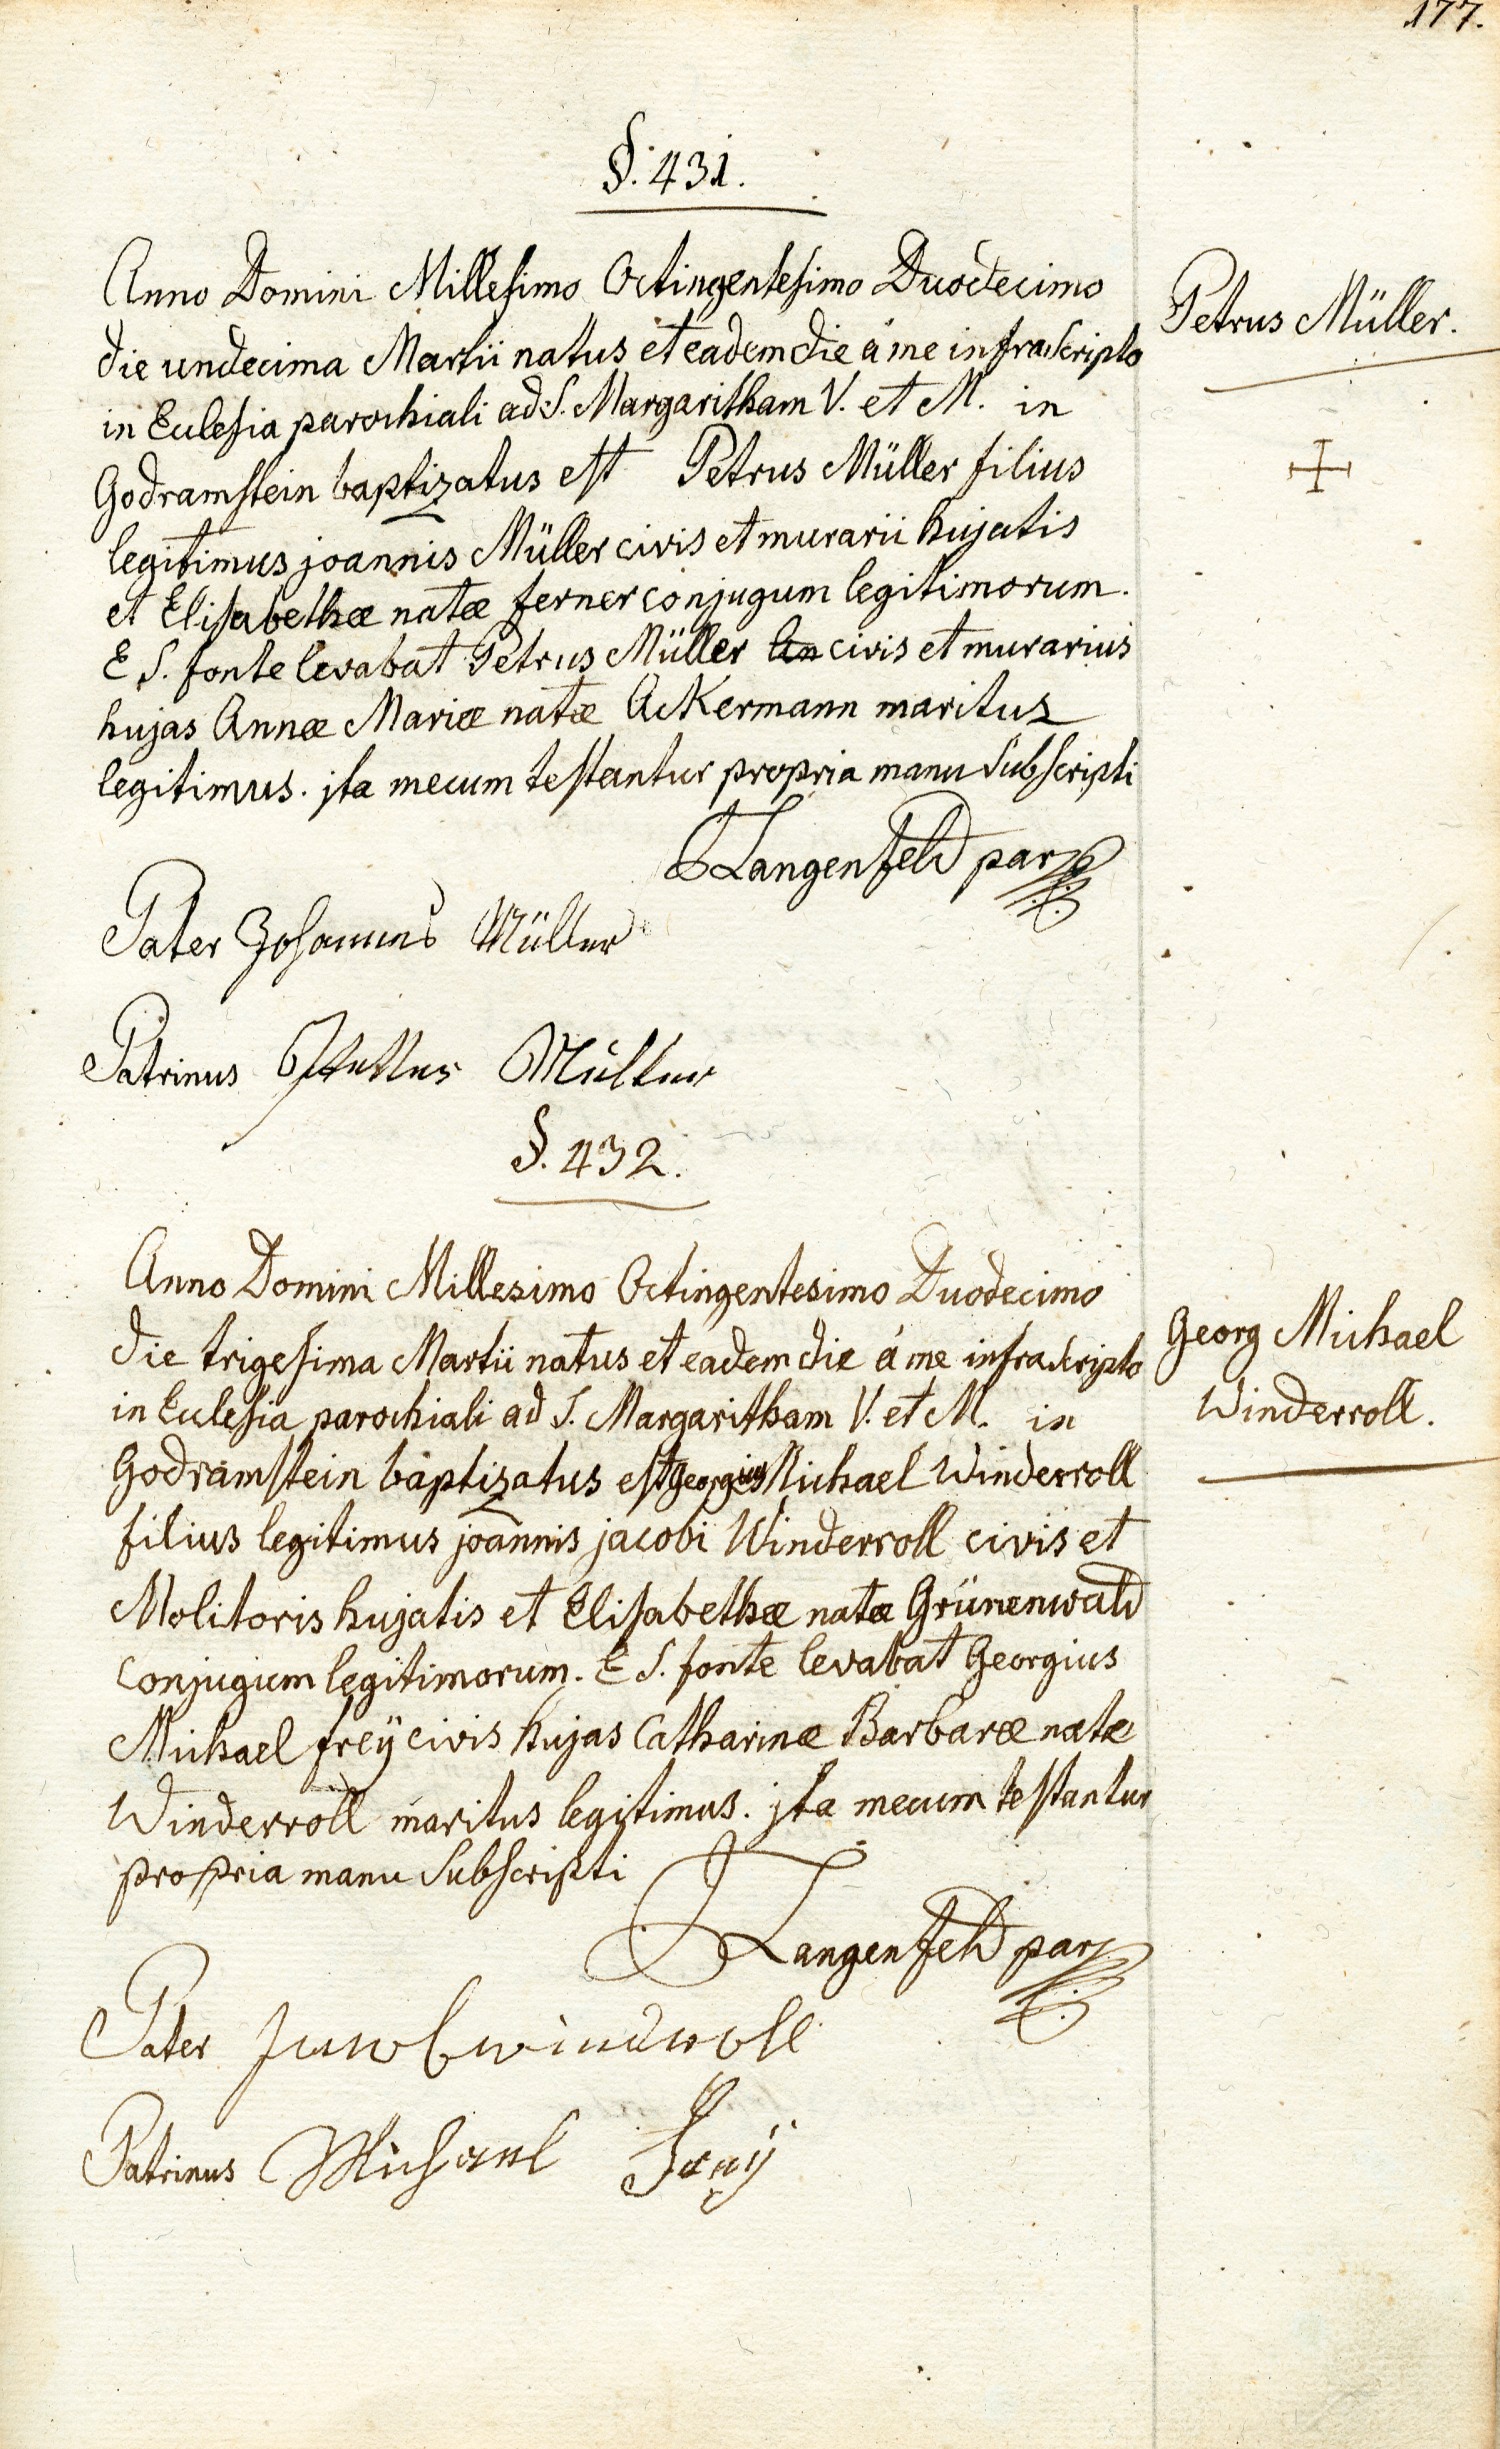 177.
§. 431.
Petrus Müller.
Anno Domini Millesimo Octingentesimo Duodecimo
die undecima Martii natus et eadem die á me infrascripto
in Eclesia parochiali ad S. Margaritham V. et M. in
Godramstein baptizatus est Petrus Müller filius
legitimus joannis Müller civis et murarii hujatis
et Elisabethæ natæ ferner conjugum legitimorum.
E S. fonte levabat Petrus Müller civis et murarius
hujas Annæ Mariæ natæ Ackermann maritus
legitimus. jta mecum testantur propria manu Subscripti
Langenfeld par
Pater Johannes Müller
Patrinus Müller
§. 432.
Georg Michael
Winderroll.
Anno Domini Millesimo Octingentesimo Duodecimo
die trigesima Martii natus et eadem die á me infrascripto
in Eclesia parochiali ad S. Margaritham V. et M. in
Godramstein baptizatus est Georgius Michael Winderroll
filius legitimus joannis jacobi Winderroll civis et
Molitoris hujatis et Elisabethæ natæ Grünenwald
Conjugum legitimorum. E S. fonte levabat Georgius
Michael freÿ civis hujas Catharinæ Barbaræ natæ
Winderroll maritus legitimus. jta mecum testantur
propria manu Subscripti
Langenfeld par
Pater Jacob winderoll
Patrinus Michael Freÿ